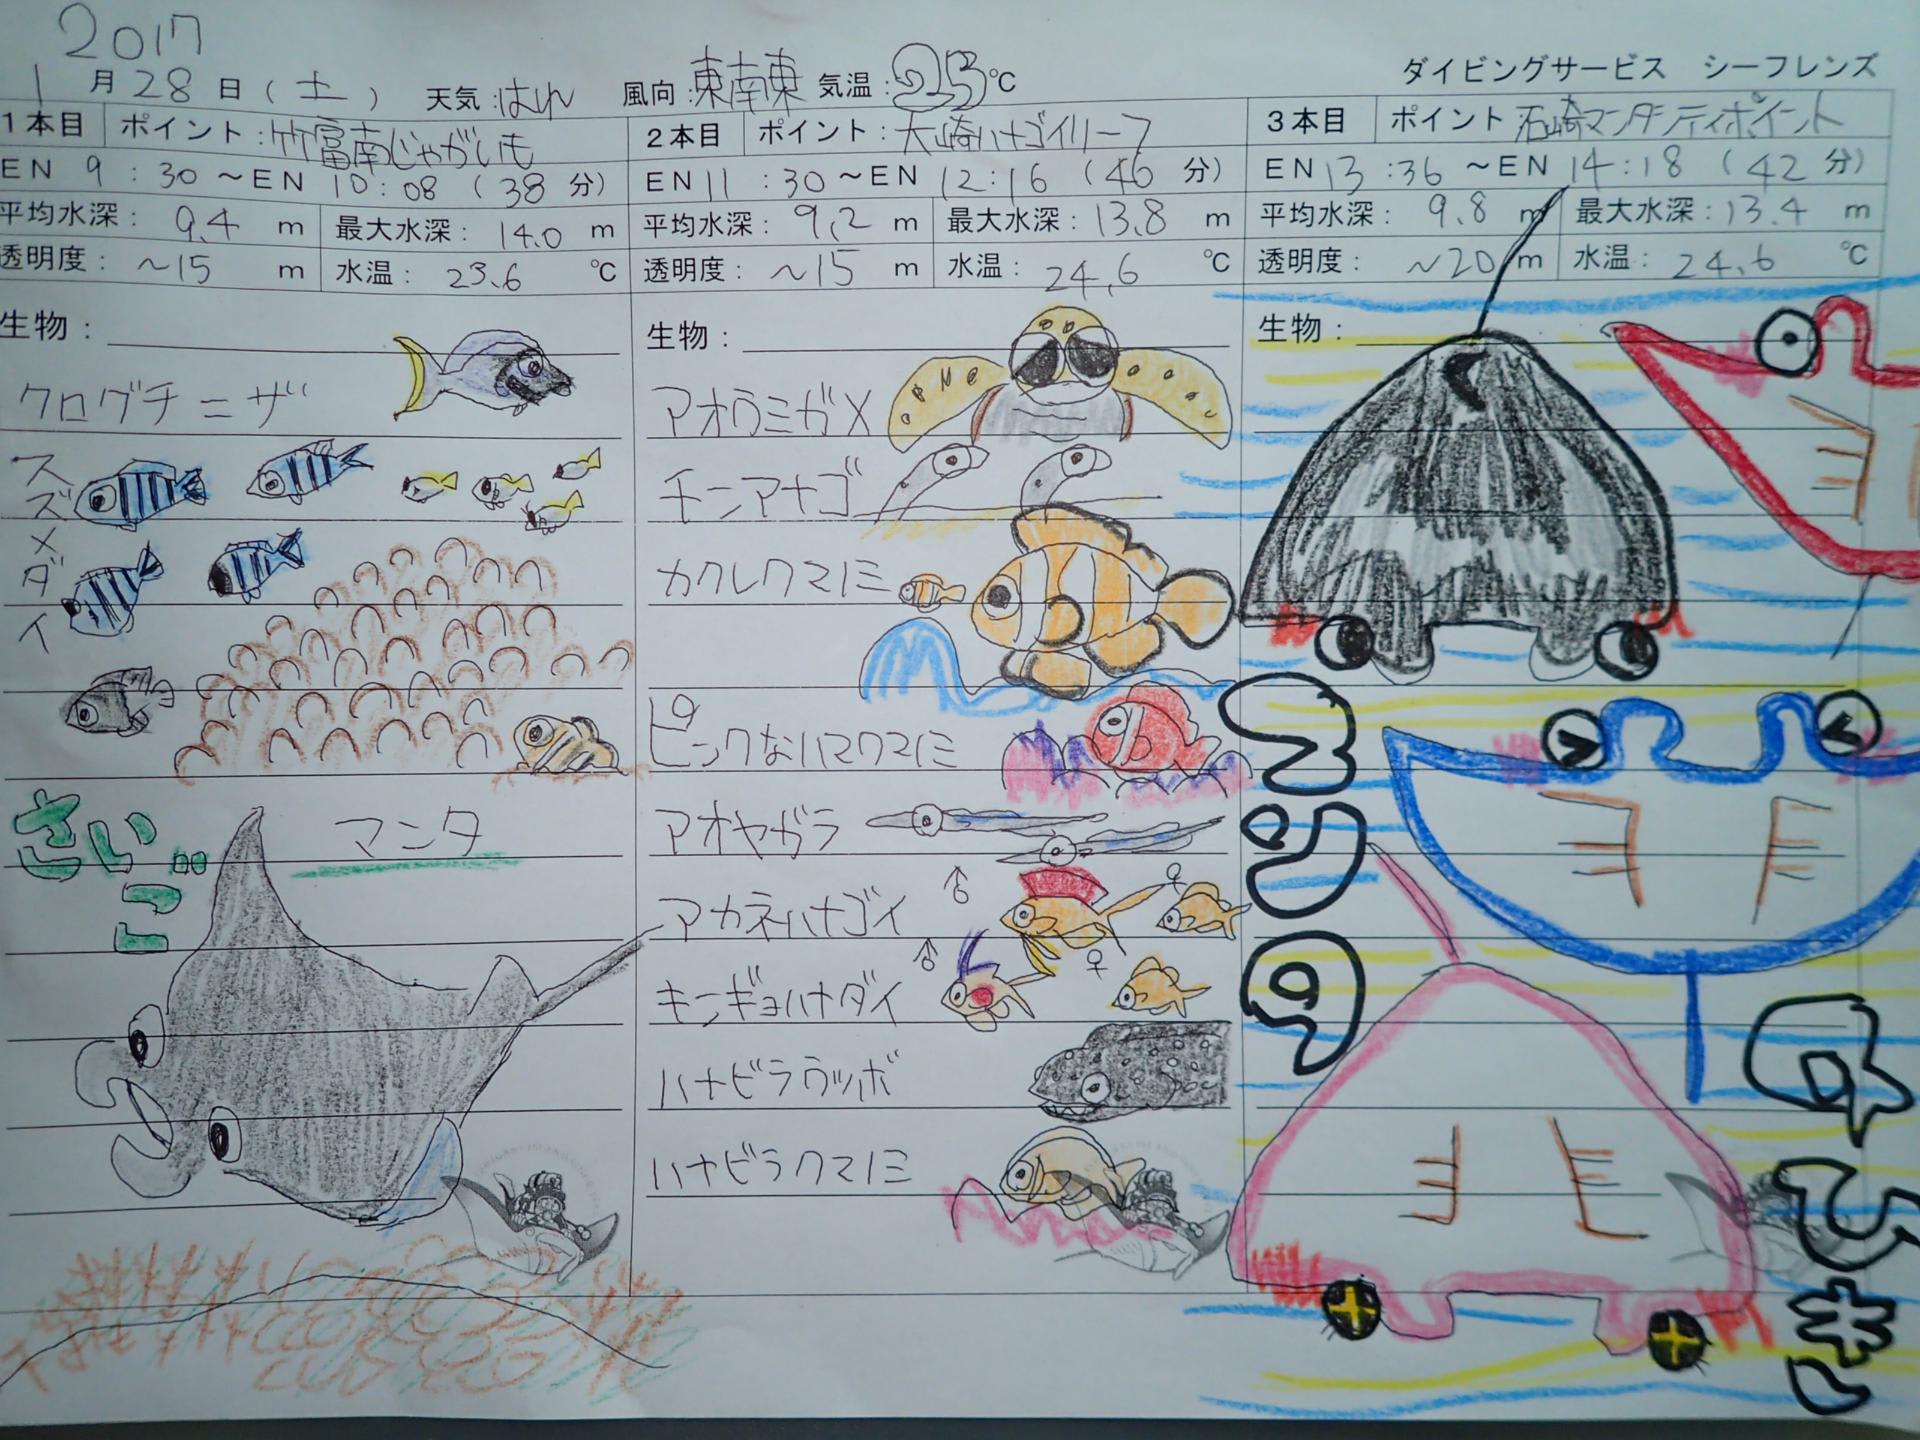 2017
1月28日(土) 天気:はれ 風向:東南東 気温:25℃
ダイビングサービス シーフレンズ
1本目 ポイント:竹富南じゃがいも
EN 9:30～EN 10:08(38分)
平均水深:9.4m 最大水深:14.0m
透明度:～15m 水温:23.6℃
生物:
クログチニザ
スズメダイ
さいご!!に
マンタ
2本目 ポイント:大崎ハナゴイリーフ
EN 11:30～EN 12:16(46分)
平均水深:9.2m 最大水深:13.8m
透明度:～15m 水温:24.6℃
生物:
アオウミガメ
チンアナゴ
カクレクマノミ
ピンクなハマクマノミ
アオヤガラ
アカネハナゴイ
♂ ♀
キンギョハナダイ
♂ ♀
ハナビラウツボ
ハナビラクマノミ
3本目 ポイント 石崎マンタシティポイント
EN 13:36～EN 14:18(42分)
平均水深:9.8m 最大水深:13.4m
透明度:～20m 水温:24.6℃
生物:
マンタ
4ひき